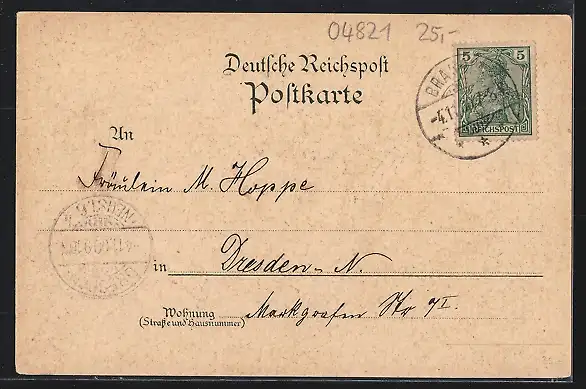 04821 25,-
Deutsche Reichspost
Postkarte
5 5
REICHSPOST
BRA
An
Fräulein M. Hoppe
in Dresden-N.
Wohnung
(Straße und Hausnummer)
Markgrafen Str